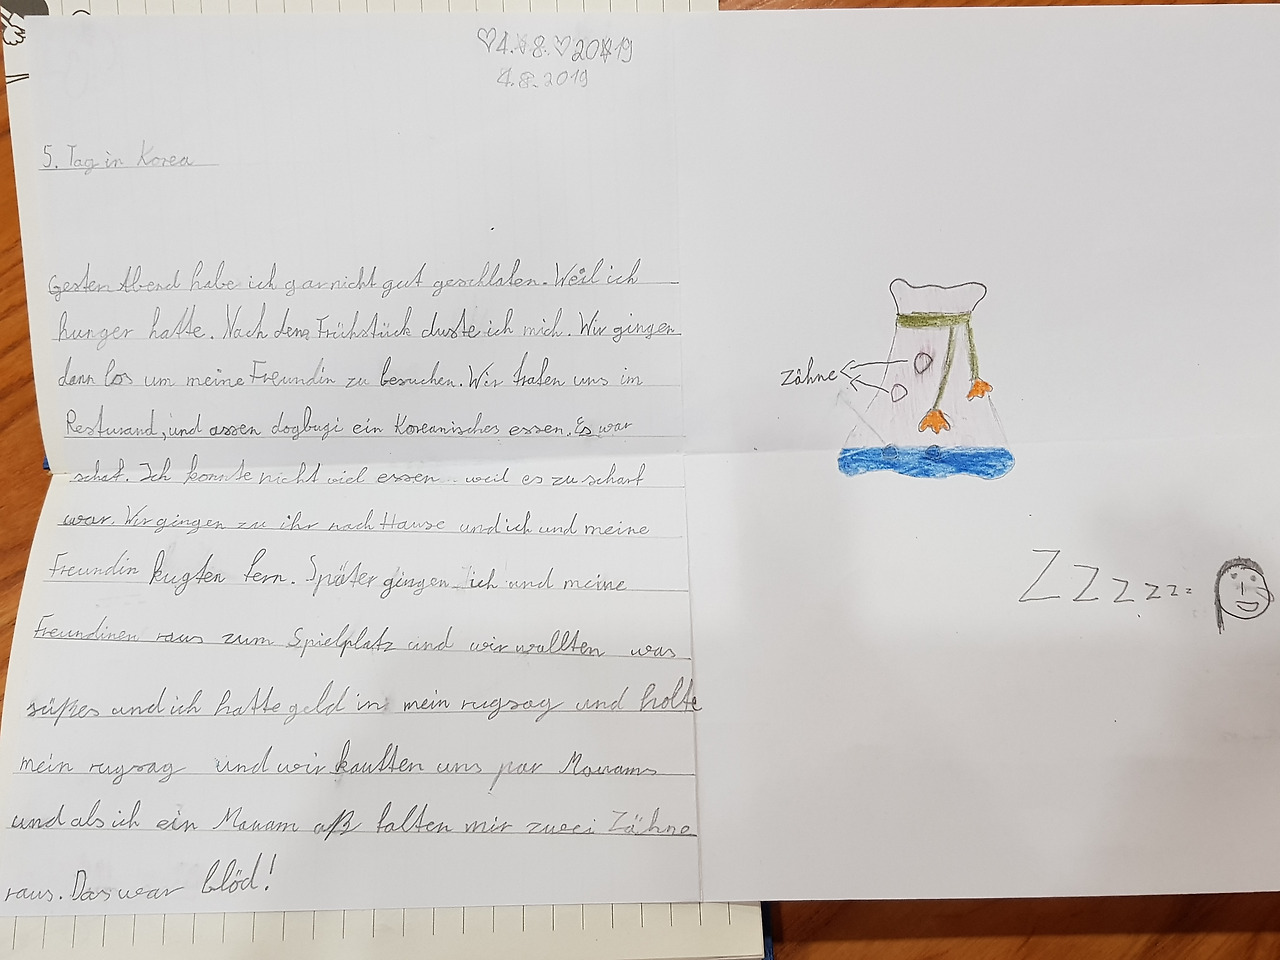 ♡4.♡8.♡20☆19
4.8.2019
5. Tag in Korea
Gesten Abend habe ich garnicht gut geschlafen. Weil ich
hunger hatte. Nach dem Frühstück duste ich mich. Wir gingen
dann los um meine Freundin zu besuchen. Wir trafen uns im
Resturand, und assen dogbugi ein Koreanisches essen. Es war
schaf. Ich konnte nicht viel essen weil es zu scharf
war. Wir gingen zu ihr nach Hause und ich und meine
Freundin kugten fern. Später gingen ich und meine
Freundinen raus zum Spielplatz und wir wollten was
süßes und ich hatte geld in mein rugsag und holte
mein rugsag und wir kauften uns par Mauams
und als ich ein Mauam aß falten mir zwei Zähne
raus. Das war blöd!
Zähne
Zzzzzz